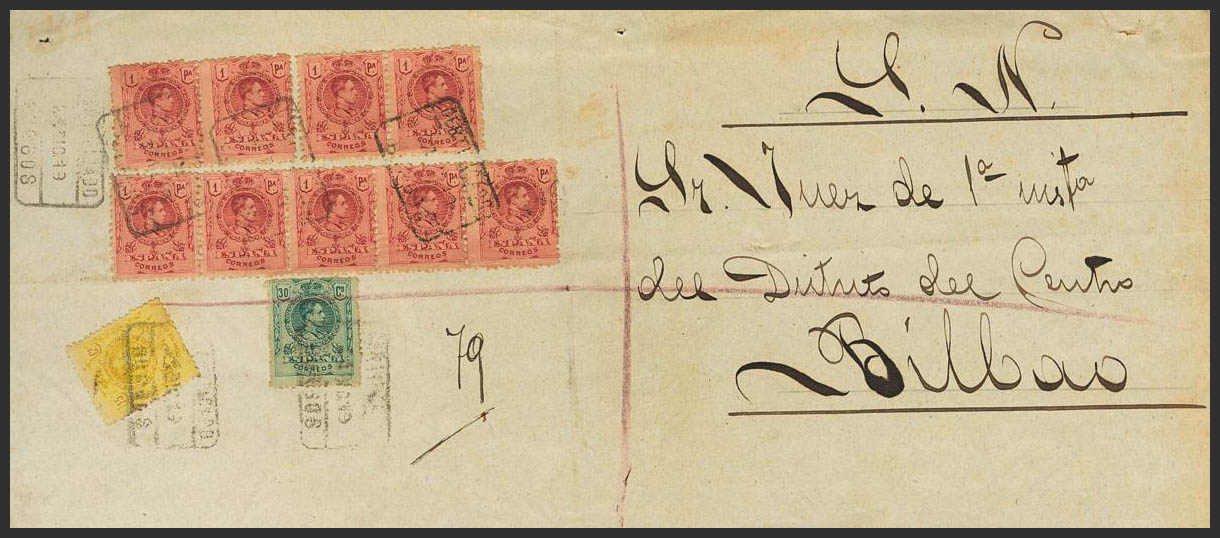 S. N.
Sr. Juez de 1ª inst.ª
del Distrito del Centro
Bilbao
79
1 PA
1 PA
1 PA
1 PA
ESPAÑA
ESPAÑA
ESPAÑA
ESPAÑA
CORREOS
CORREOS
CORREOS
CORREOS
1 PA
1 PA
1 PA
1 PA
1 PA
ESPAÑA
ESPAÑA
ESPAÑA
ESPAÑA
ESPAÑA
CORREOS
CORREOS
CORREOS
CORREOS
CORREOS
30 Cs
ESPAÑA
CORREOS